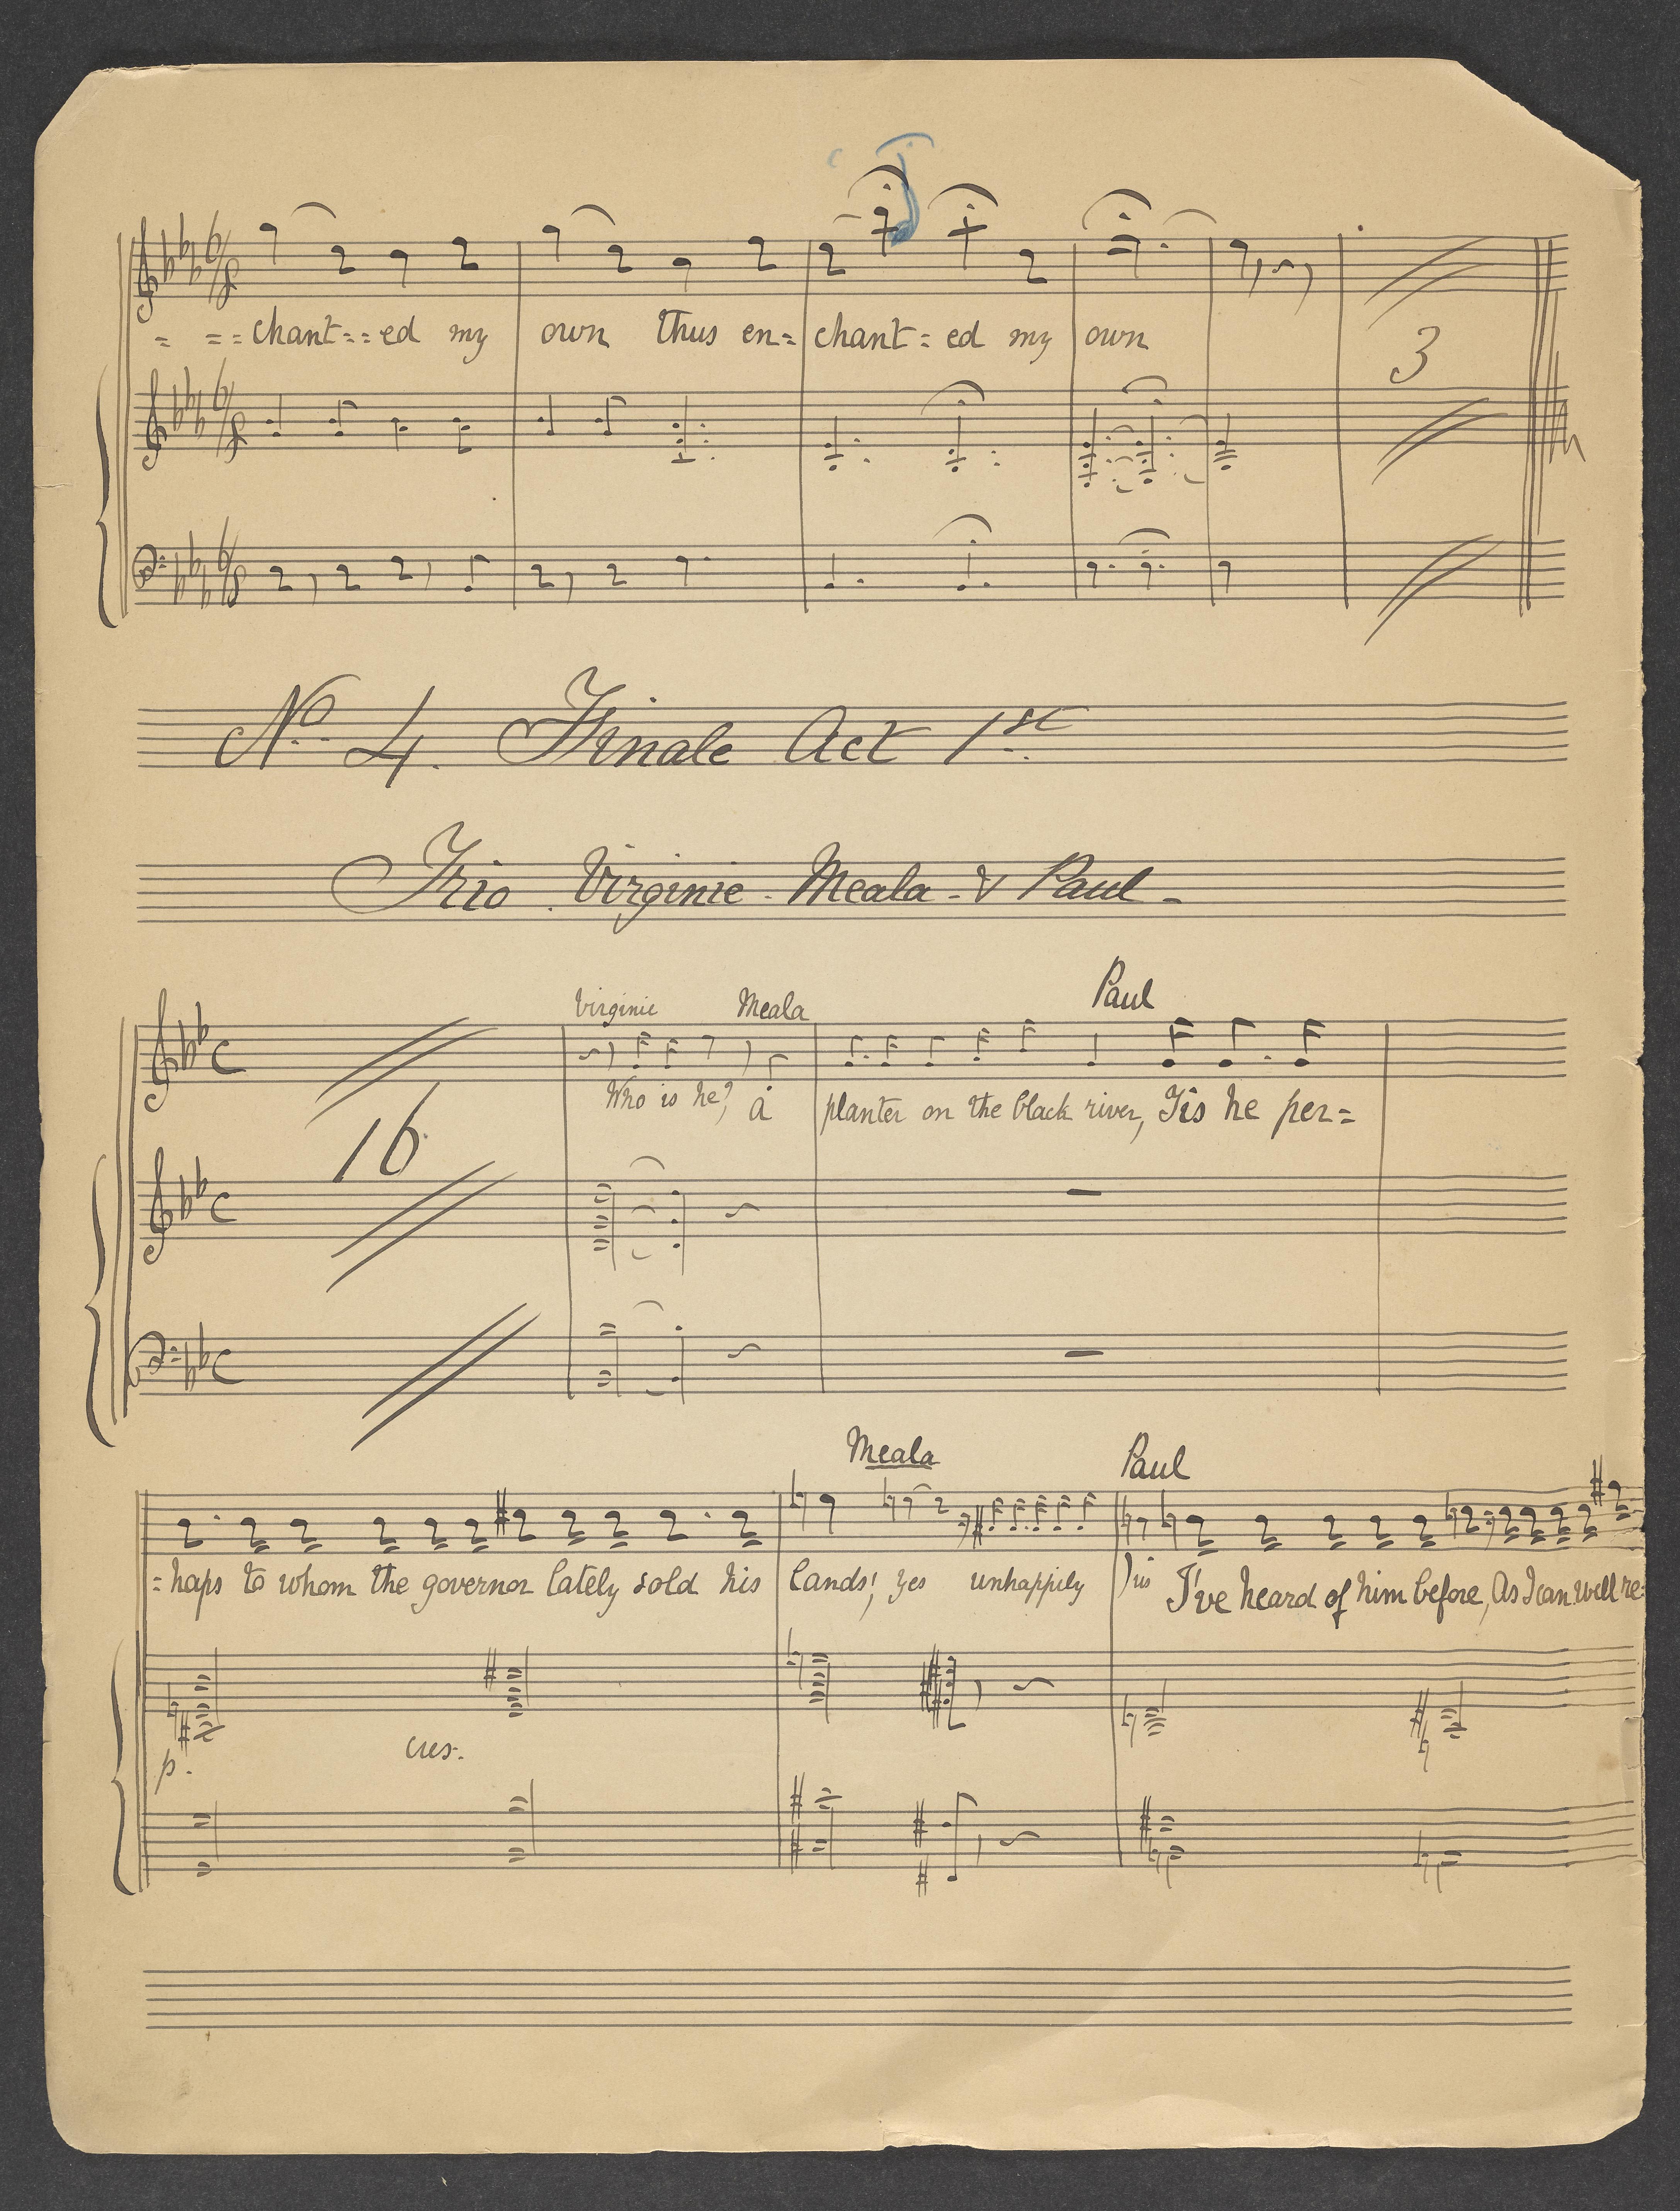 = == chant == ed my own thus en= chant = ed my own
3
No. 4. Finale Act 1st
Trio Virginie - Meala - & Paul -
Virginie Meala Paul
Who is he? a planter on the black river, Tis he per=
16
Meala Paul
=haps to whom the governor lately sold his lands! yes unhappily I've heard of him before, As I can well re=
p. cres.